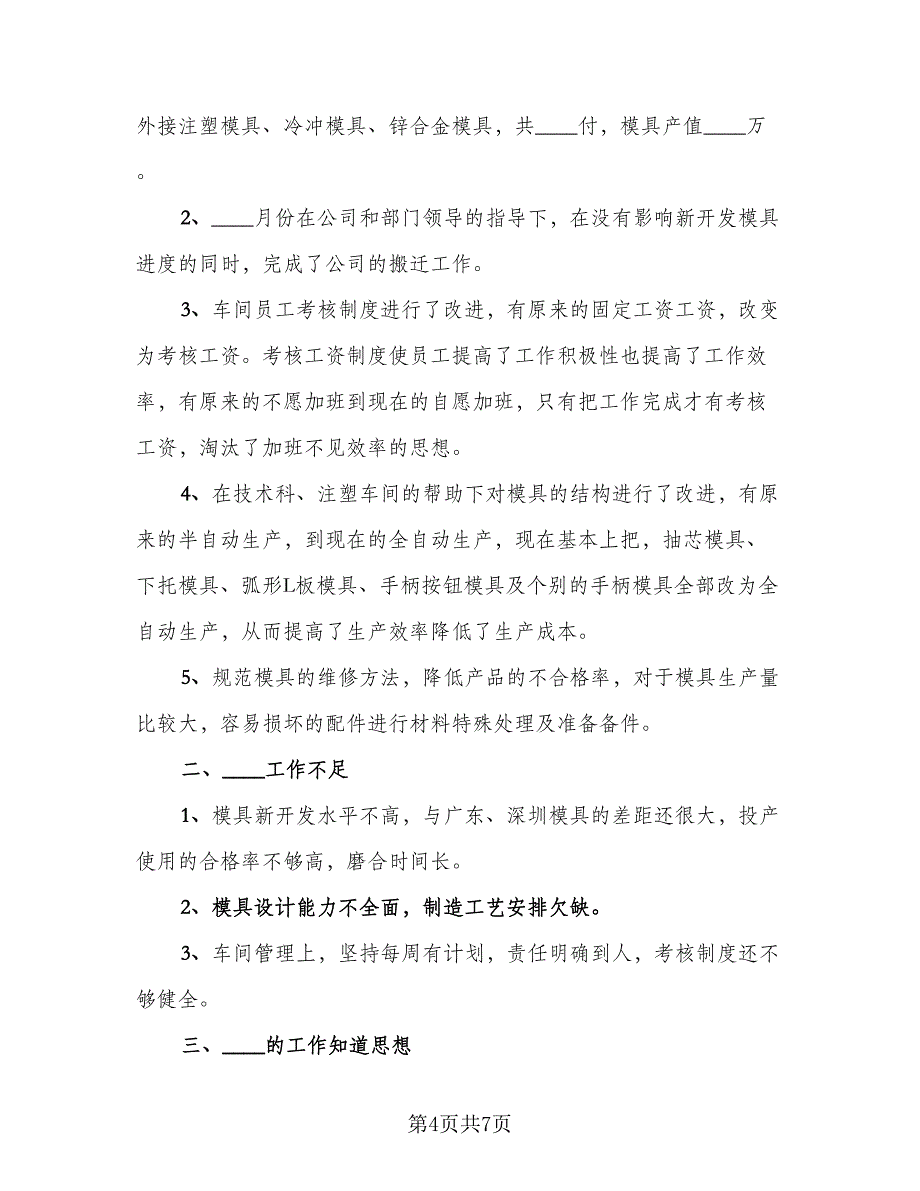 外接注塑模具、冷冲模具、锌合金模具，共____付，模具产值____万
。
2、____月份在公司和部门领导的指导下，在没有影响新开发模具
进度的同时，完成了公司的搬迁工作。
3、车间员工考核制度进行了改进，有原来的固定工资工资，改变
为考核工资。考核工资制度使员工提高了工作积极性也提高了工作效
率，有原来的不愿加班到现在的自愿加班，只有把工作完成才有考核
工资，淘汰了加班不见效率的思想。
4、在技术科、注塑车间的帮助下对模具的结构进行了改进，有原
来的半自动生产，到现在的全自动生产，现在基本上把，抽芯模具、
下托模具、弧形L板模具、手柄按钮模具及个别的手柄模具全部改为全
自动生产，从而提高了生产效率降低了生产成本。
5、规范模具的维修方法，降低产品的不合格率，对于模具生产量
比较大，容易损坏的配件进行材料特殊处理及准备备件。
二、____工作不足
1、模具新开发水平不高，与广东、深圳模具的差距还很大，投产
使用的合格率不够高，磨合时间长。
2、模具设计能力不全面，制造工艺安排欠缺。
3、车间管理上，坚持每周有计划，责任明确到人，考核制度还不
够健全。
三、____的工作知道思想
第4页共7页